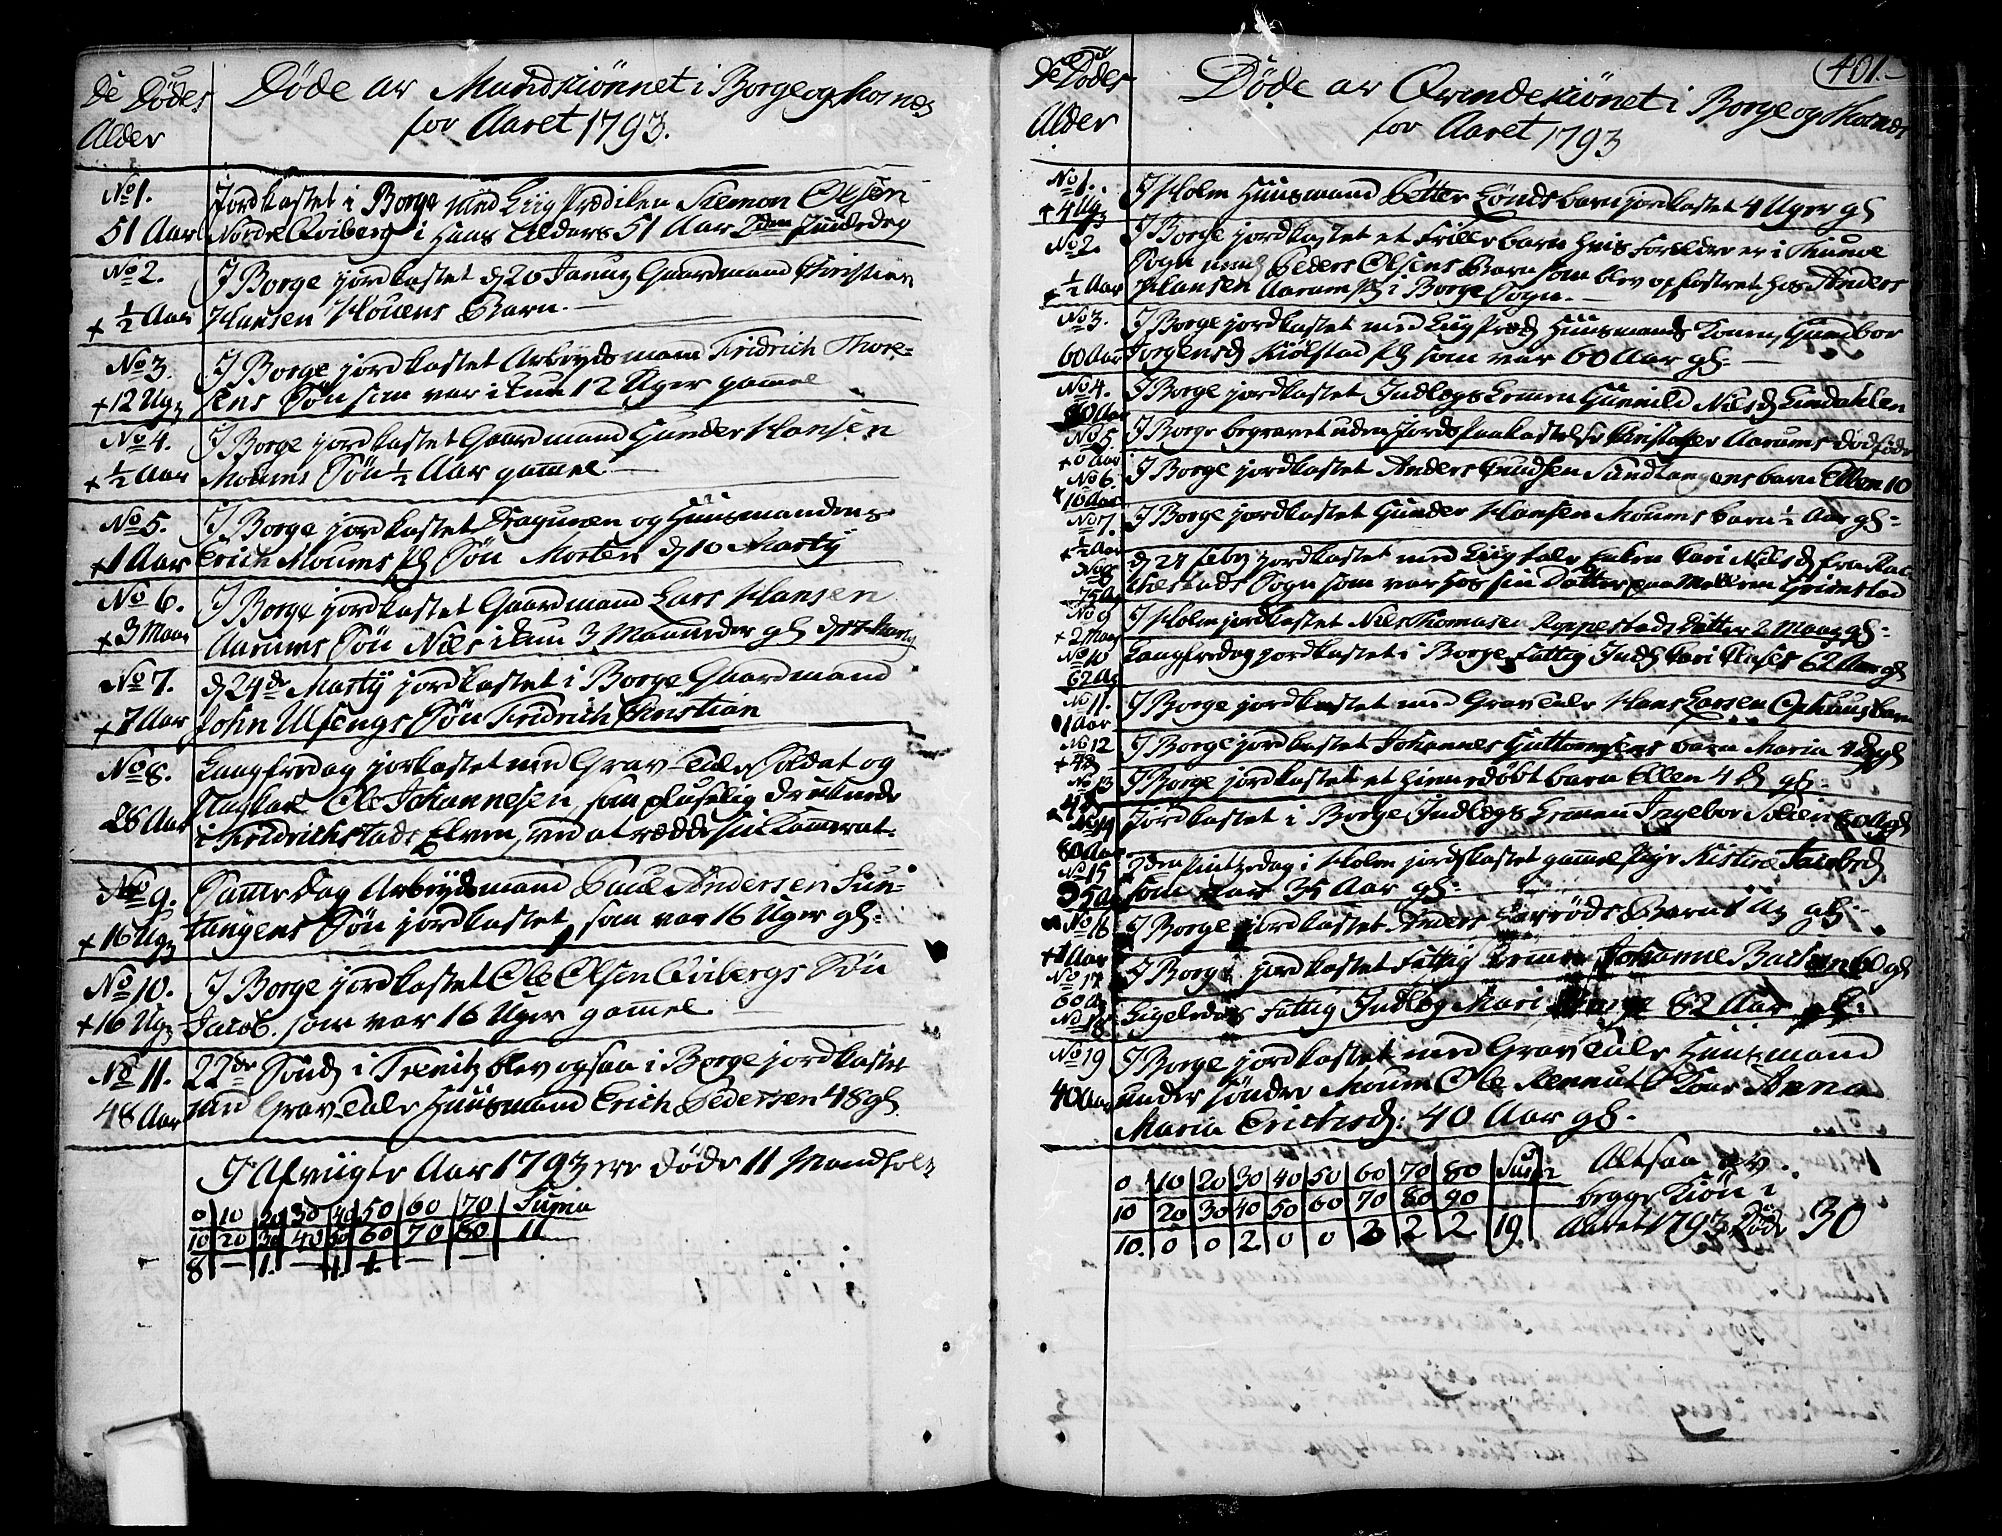 De Dødes
Alder
Døde av Mandkiønnet i Borge og
for Aaret 1793.
No 1.
51 Aar
Jordkastet i Borge med Liig Prædiken Siemon Olsøn
Nordre Qviberg i Hans Alders 51 Aar 2den Juuledag
No 2.
+ ½ Aar
I Borge jordkastet d 20 Januj Gaardmand Christian
Hansen Houens Barn.
No 3.
+ 12 Ugr
I Borge jordkastet Arbeydsmann Fridrich Thore-
sens Søn som var ikun 12 Uger gammel
No 4.
+ ½ Aar
I Borge jordkastet Gaardmand Gunder Hansen
Moums Søn ½ Aar gammel
No 5.
+ 1 Aar
I Borge jordkastet Dragunen og Huusmandens
Erich Moums Søn Morten d 10 Martj
No 6.
+ 3 Maan
I Borge jordkastet Gaardmand Lars Hansen
Aarums Søn Nils ikun 3 Maaneder gl d 17 Martj
No 7.
+ 7 Aar
d 24de Martij jordkastet i Borge Gaardmand
John Ulfengs Søn Fridrich Christian
No 8.
28 Aar
Langfredag jorkastet med Grav-Tale Soldat og
Ole Johannesen, som pluselig druknede
i Fridrichstads Elven, ved at redde sin Kammerat.
No 9.
+ 16 Ugr
Samme Dag Arbeydsmand Poul Andersen Sun-
tangens Søn jordkastet, som var 16 Uger gl.
No 10.
+ 16 Ugr
I Borge jordkastet Ole Olsen Qvibergs Søn
Jacob. som var 16 Uger gammel
No 11.
48 Aar
22de Sønd i Trenit blev ogsaa i Borge jordkastet
med Grav Tale Huusmand Erich Pedersen 48 gl.
I Afvigte Aar 1793 ere døde 11 Mandfolk
0 | 10 | 20 | 30 | 40 | 50 | 60 | 70 | Suma
10 | 20 | 30 | 40 | 50 | 60 | 70 | 80 | 11
8 | — | 1. | — | 1. | 1. | — | —
401.
De Dødes
Alder
Døde av Qvindekiønet i Borge og
for Aaret 1793
No 1.
+ 4 Ug
I Holm Huusmand Petter Lønds barn jordkastet 4 Uger gl
No 2.
+ ½ Aar
I Borge jordkastet et Frille barn hvis Forældre er i Thune
Sogn Peders Olsens Barn som blev opfostret hos Anders
Hansen Aarum i Borge Sogn.
No 3.
60 Aar
I Borge jordkastet med Liig Præd Huusmands Konen Gunbor
Jorgensd Kiølstad som var 60 Aar gl.
No 4.
80 Aar
I Borge jordkastet Indlægs Lemmen Gunnild Nilsd Lindahlen
No 5
+ 0 Aar
I Borge begravet uden Jords paakastelse Christopher Aarums dødføde
No 6.
+ 10 Aar
I Borge jordkastet Anders Knudsen Sundtangens barn Ellen 10
No 7.
+ ½ Aar
I Borge jordkastet Gunder Hansen Moums barn ½ Aar gl.
No 8
75 A
d 27 Febr jordkastet med Liigtale Enken Kari Nilsd fra Rac
kestads Sogn som var hos sin Datter paa Mellem Grimstad
No 9
+ 2 Maan
I Holm jordkastet Nils Thomasen Roppestads Datter 2 Maan gl.
No 10
62 A
Langfredag jordkastet i Borge Fattig Indl Kari 62 Aar gl
No 11.
1 Aar
I Borge jordkastet med Grav Tale Hans Larsen barn
No 12
+ 4 d
I Borge jordkastet Johannes Guttormsens barn Maria 4 d gl
No 13
4 d
I Borge jordkastet et hjemmedøbt barn Ellen 4 d gl.
No 14
80 Aar
Jordkastet i Borge Indlægs Lemmen Ingebor 80 A gl
No 15
35 A
2den Pintzedag i Holm jordkastet gammel Pige Kistine Jacobsd
som var 35 Aar gl.
No 16
+ 1 Aar
I Borge jordkastet Anders Barn 1 A gl.
No 17
60 A
I Borge jordkastet Fattig Lemmen Johanne 60 gl
No 18
Ligeledes Fattig Indlæg Mari 82 Aar gl.
No 19
40 Aar
I Borge jordkastet med Grav Tale Huusmand
under søndre Moum Ole Kone Anna
Maria Erichsd: 40 Aar gl.
0 | 10 | 20 | 30 | 40 | 50 | 60 | 70 | 80 | Sum
10 | 20 | 30 | 40 | 50 | 60 | 70 | 80 | 90
10. | 0 | 0 | 2 | 0 | 0 | 3 | 2 | 2 | 19
Altsaa av
begge Kiøn i
Aaret 1793 Døde 30